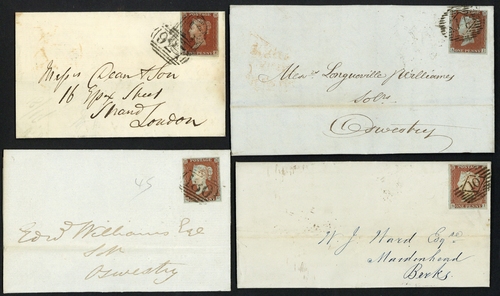 Messrs Dean & Son
16 Essex Street
Strand
London
Messrs Longueville Williames
Solrs
Oswestry
45
Edwd Williams Esq
Solr
Oswestry
W. J. Ward Esqre
Maidenhead
Berks